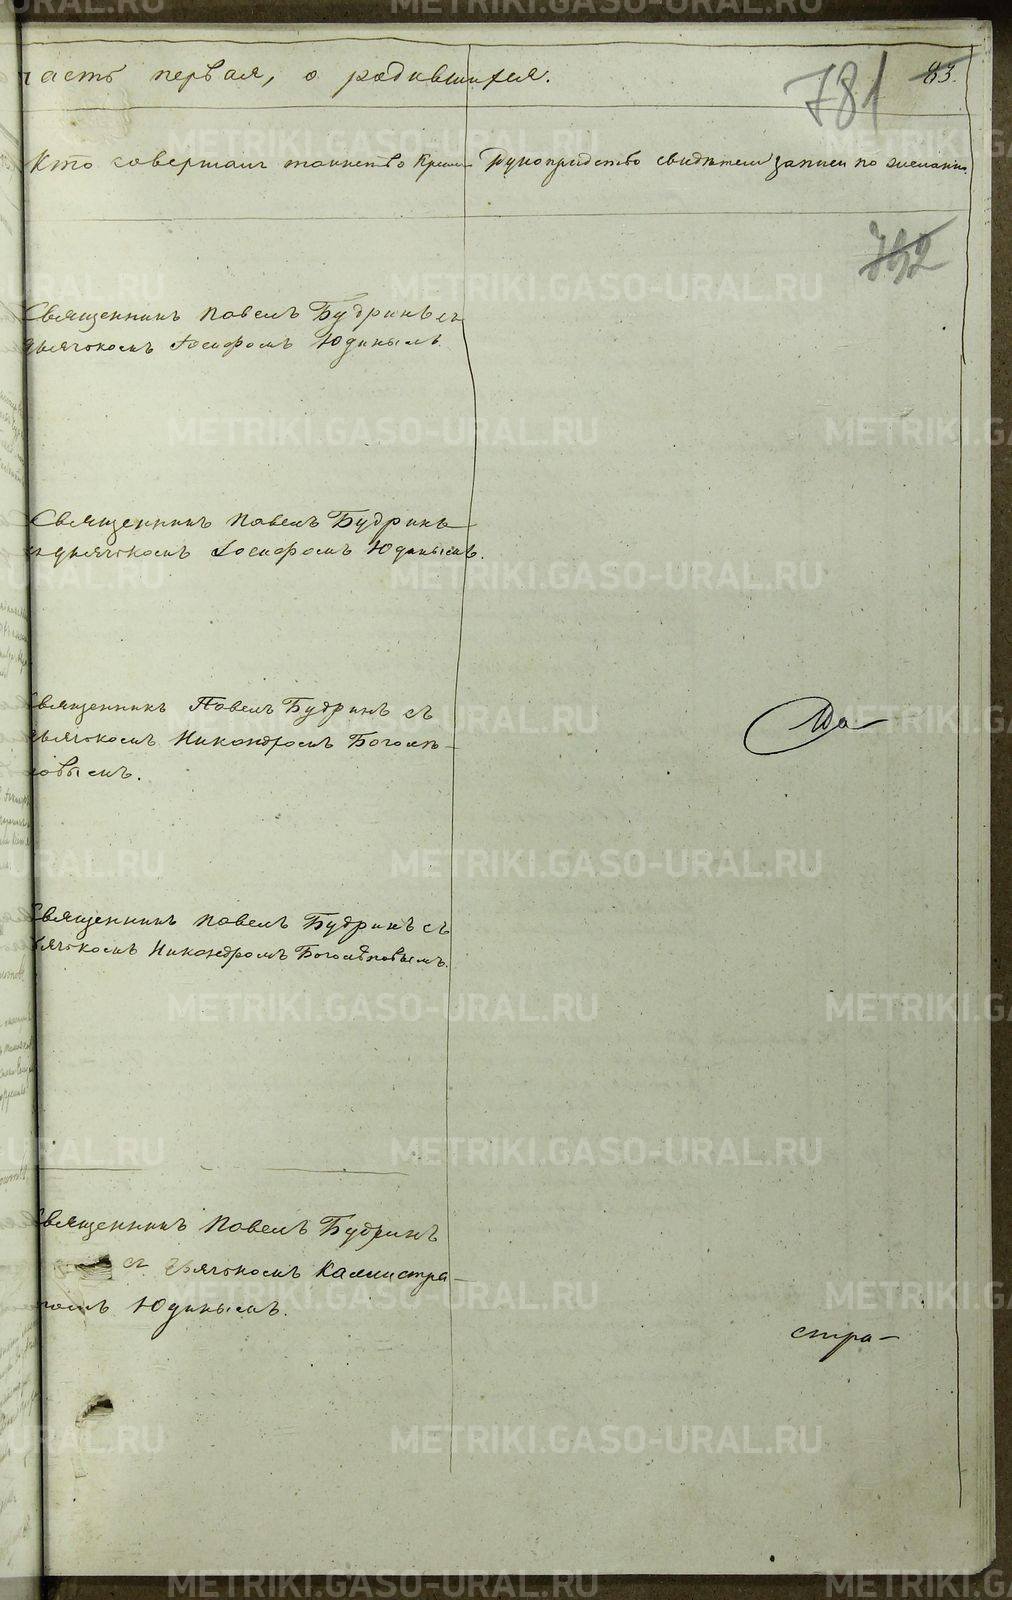 часть первая, о родившихся.
781
83.
Кто совершалъ таинство Крещ-
Рукоприкладство свидѣтелей записи по желанию.
792
Священникъ Павелъ Будринъ съ
дьячкомъ Іосифомъ Юдинымъ.
Священникъ Павелъ Будринъ
съ дьячкомъ Іосифомъ Юдинымъ.
Священникъ Павелъ Будринъ съ
дьячкомъ Никандромъ Боголѣ-
повымъ.
Священникъ Павелъ Будринъ съ
дьячкомъ Никандромъ Боголѣповымъ.
Священникъ Павелъ Будринъ
съ дьячкомъ Каллистра-
томъ Юдинымъ.
стра-
METRIKI.GASO-URAL.RU